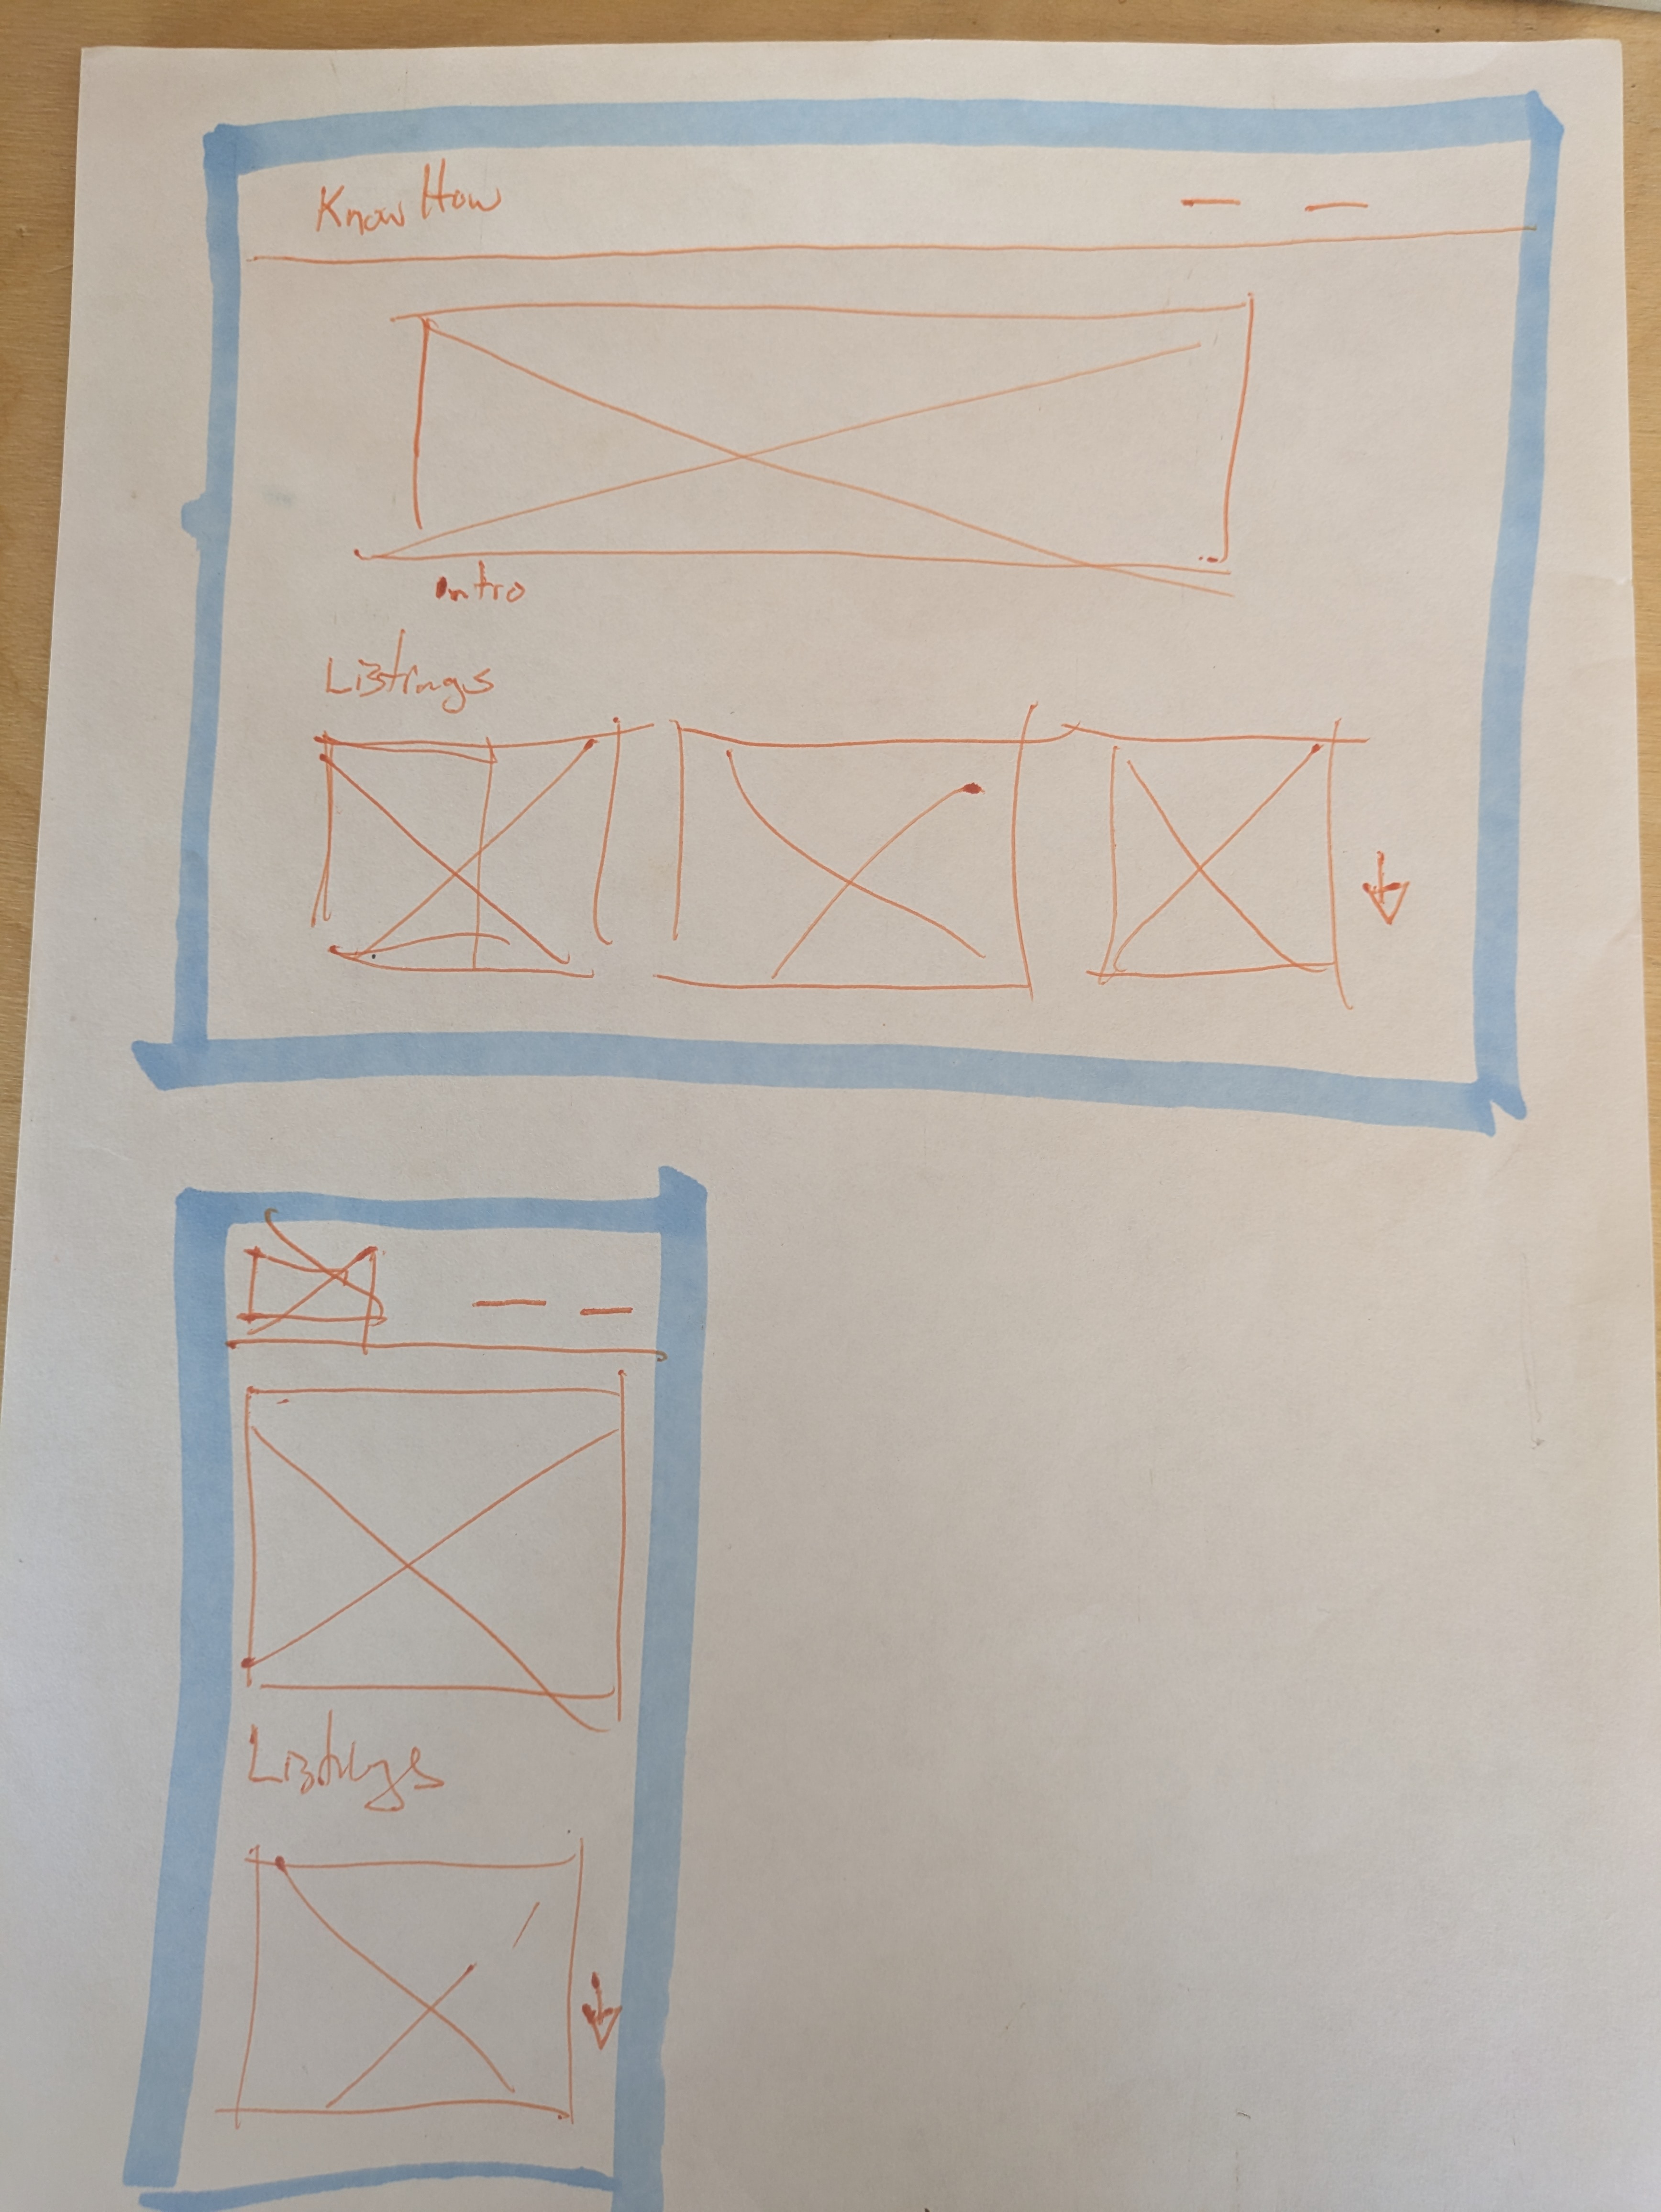 Know How
Intro
Listings
Listings